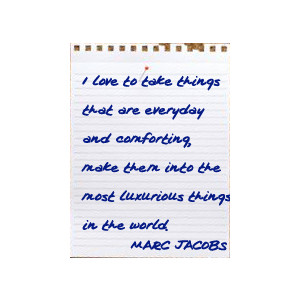 I love to take things
that are everyday
and comforting,
make them into the
most luxurious things
in the world.
MARC JACOBS